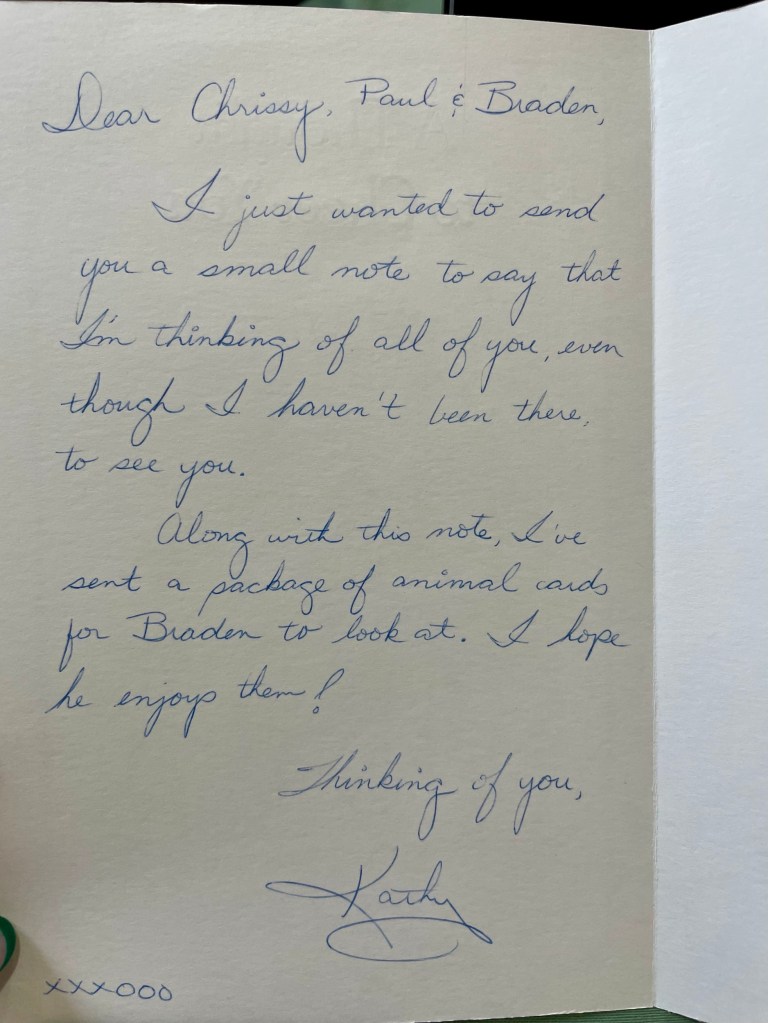 Dear Chrissy, Paul & Braden,
I just wanted to send
you a small note to say that
I'm thinking of all of you, even
though I haven't been there,
to see you.
Along with this note, I've
sent a package of animal cards
for Braden to look at. I hope
he enjoys them!
Thinking of you,
Kathy
xxxooo